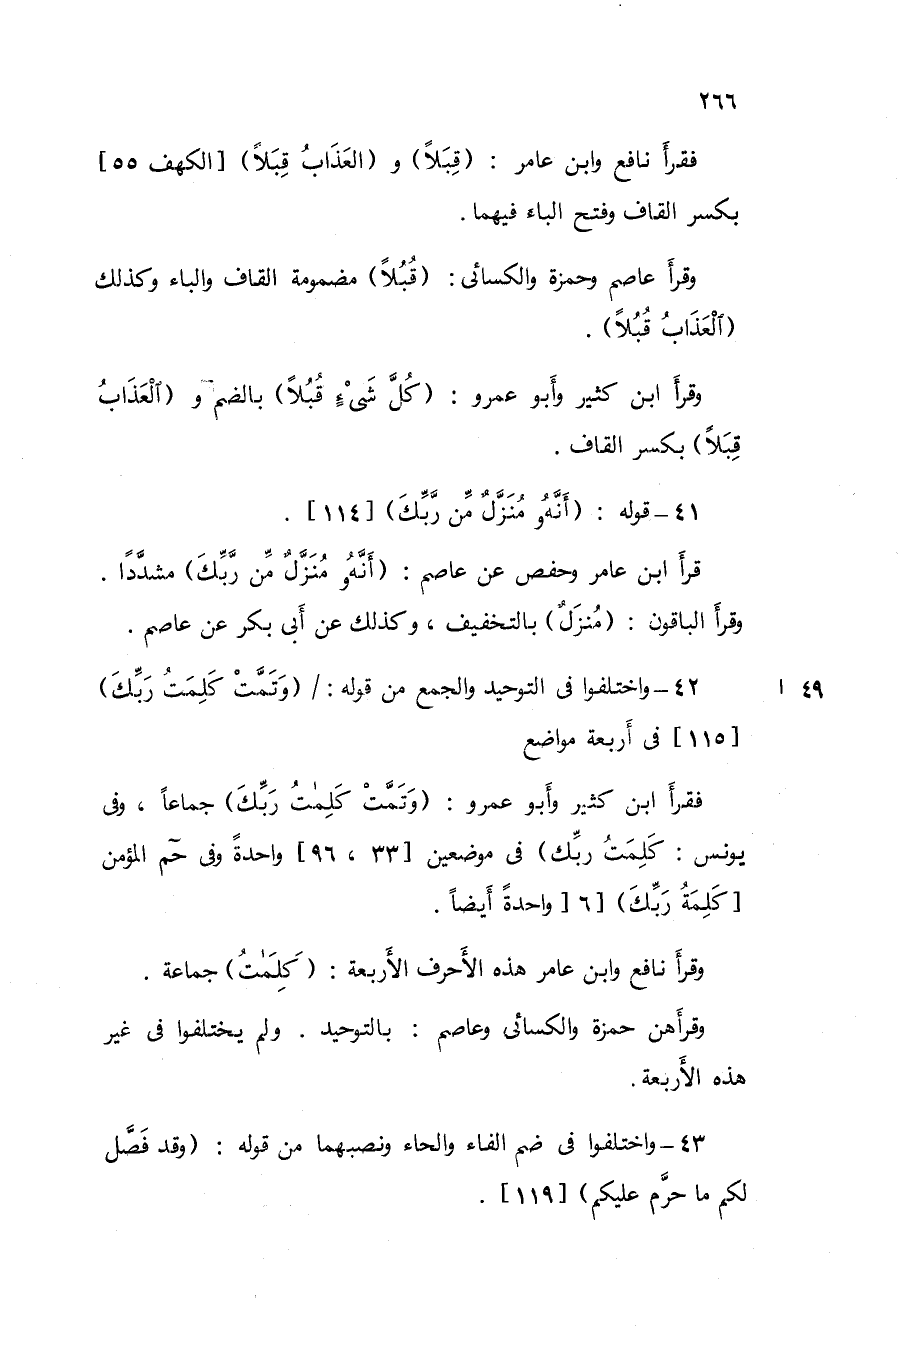 ٢٦٦
فقرأ نافع وابن عامر : (قِبَلاً) و (العَذَابُ قِبَلاً) [الكهف ٥٥]
بكسر القاف وفتح الباء فيهما .
وقرأ عاصم وحمزة والكسائى : (قُبُلاً) مضمومة القاف والباء وكذلك
(ٱلْعَذَابُ قُبُلاً) .
وقرأ ابن كثير وأبو عمرو : (كُلَّ شَىْءٍ قُبُلاً) بالضم و (ٱلْعَذَابُ
قِبَلاً) بكسر القاف .
٤١ ــ قوله : (أَنَّهُۥ مُنَزَّلٌ مِّن رَّبِّكَ) [١١٤] .
قرأ ابن عامر وحفص عن عاصم : (أَنَّهُۥ مُنَزَّلٌ مِّن رَّبِّكَ) مشدَّدًا .
وقرأ الباقون : (مُنزَلٌ) بالتخفيف ، وكذلك عن أبى بكر عن عاصم .
٤٩ ا ٤٢ ــ واختلفوا فى التوحيد والجمع من قوله : / (وَتَمَّتْ كَلِمَتُ رَبِّكَ)
[١١٥] فى أربعة مواضع
فقرأ ابن كثير وأبو عمرو : (وَتَمَّتْ كَلِمَٰتُ رَبِّكَ) جماعاً ، وفى
يونس : كَلِمَتُ ربِّك) فى موضعين [٣٣ ، ٩٦] واحدةً وفى حَم المؤمن
[كَلِمَةُ رَبِّكَ) [٦] واحدةً أيضاً .
وقرأ نافع وابن عامر هذه الأحرف الأربعة : (كَلِمَٰتُ) جماعة .
وقرأهن حمزة والكسائى وعاصم : بالتوحيد . ولم يختلفوا فى غير
هذه الأربعة .
٤٣ ــ واختلفوا فى ضم الفاء والحاء ونصبهما من قوله : (وقد فَصَّل
لكم ما حرَّم عليكم) [١١٩] .